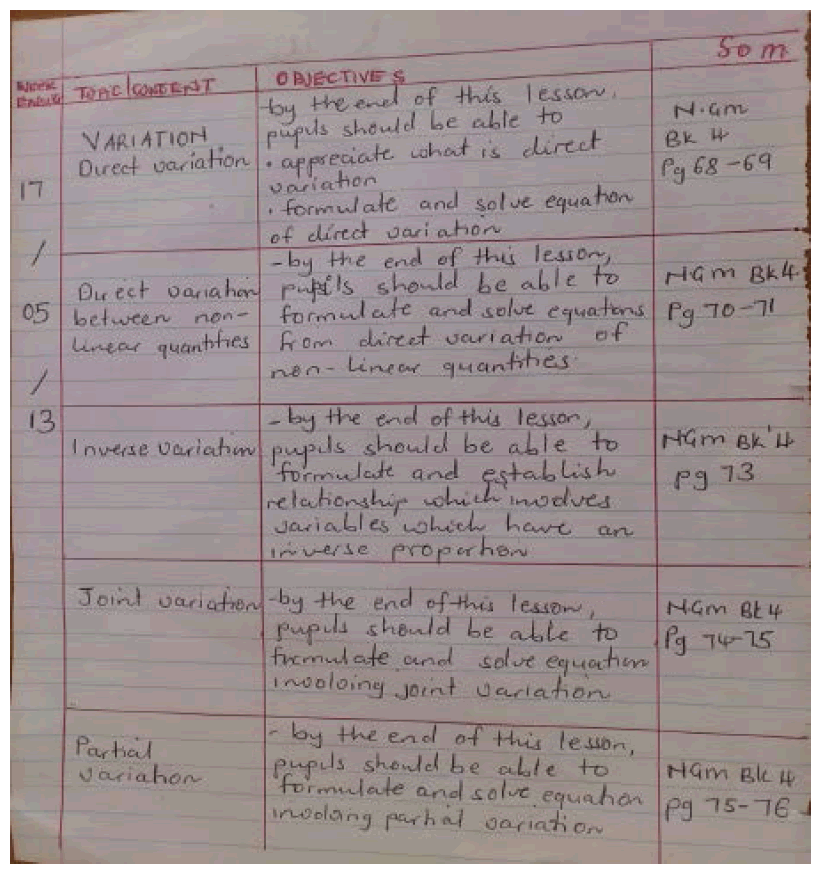 SOM
WEEK
ENDING
TOPIC/CONTENT
OBJECTIVES
17
/
05
/
13
VARIATION
Direct variation
-by the end of this lesson,
pupils should be able to
• appreciate what is direct
variation
• formulate and solve equation
of direct variation
N.Gm
Bk 4
Pg 68-69
Direct variation
between non-
linear quantities
-by the end of this lesson,
pupils should be able to
formulate and solve equations
from direct variation of
non-linear quantities.
NGm Bk4
Pg 70-71
Inverse variation
-by the end of this lesson,
pupils should be able to
formulate and establish
relationship which involves
variables which have an
inverse proportion
NGm Bk 4
pg 73
Joint variation
-by the end of this lesson,
pupils should be able to
formulate and solve equation
involving joint variation
NGm Bk4
Pg 74-75
Partial
variation
- by the end of this lesson,
pupils should be able to
formulate and solve equation
involving partial variation
NGm Bk 4
pg 75-76